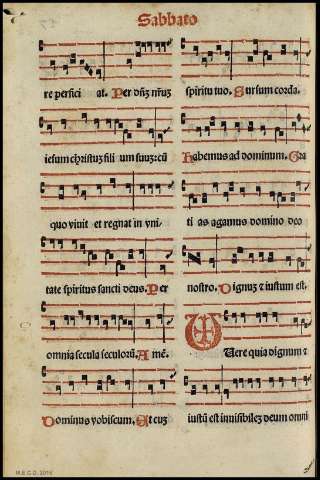 Sabbato
re perfici at. Per dñʒ nr̃uʒ
iesum christuʒ fili um suuʒ: cũ
quo viuit et regnat in vni-
tate spiritus sancti deus. Per
omnia secula seculorũ. A mẽ.
Dominus vobiscum. Et cuʒ
spiritu tuo. Sursum corda.
Habemus ad dominum. Gra
ti as agamus domino deo
nostro. Dignuʒ ⁊ iustum est.
Uere quia dignum ⁊
iustũ est inuisibileʒ deum omni